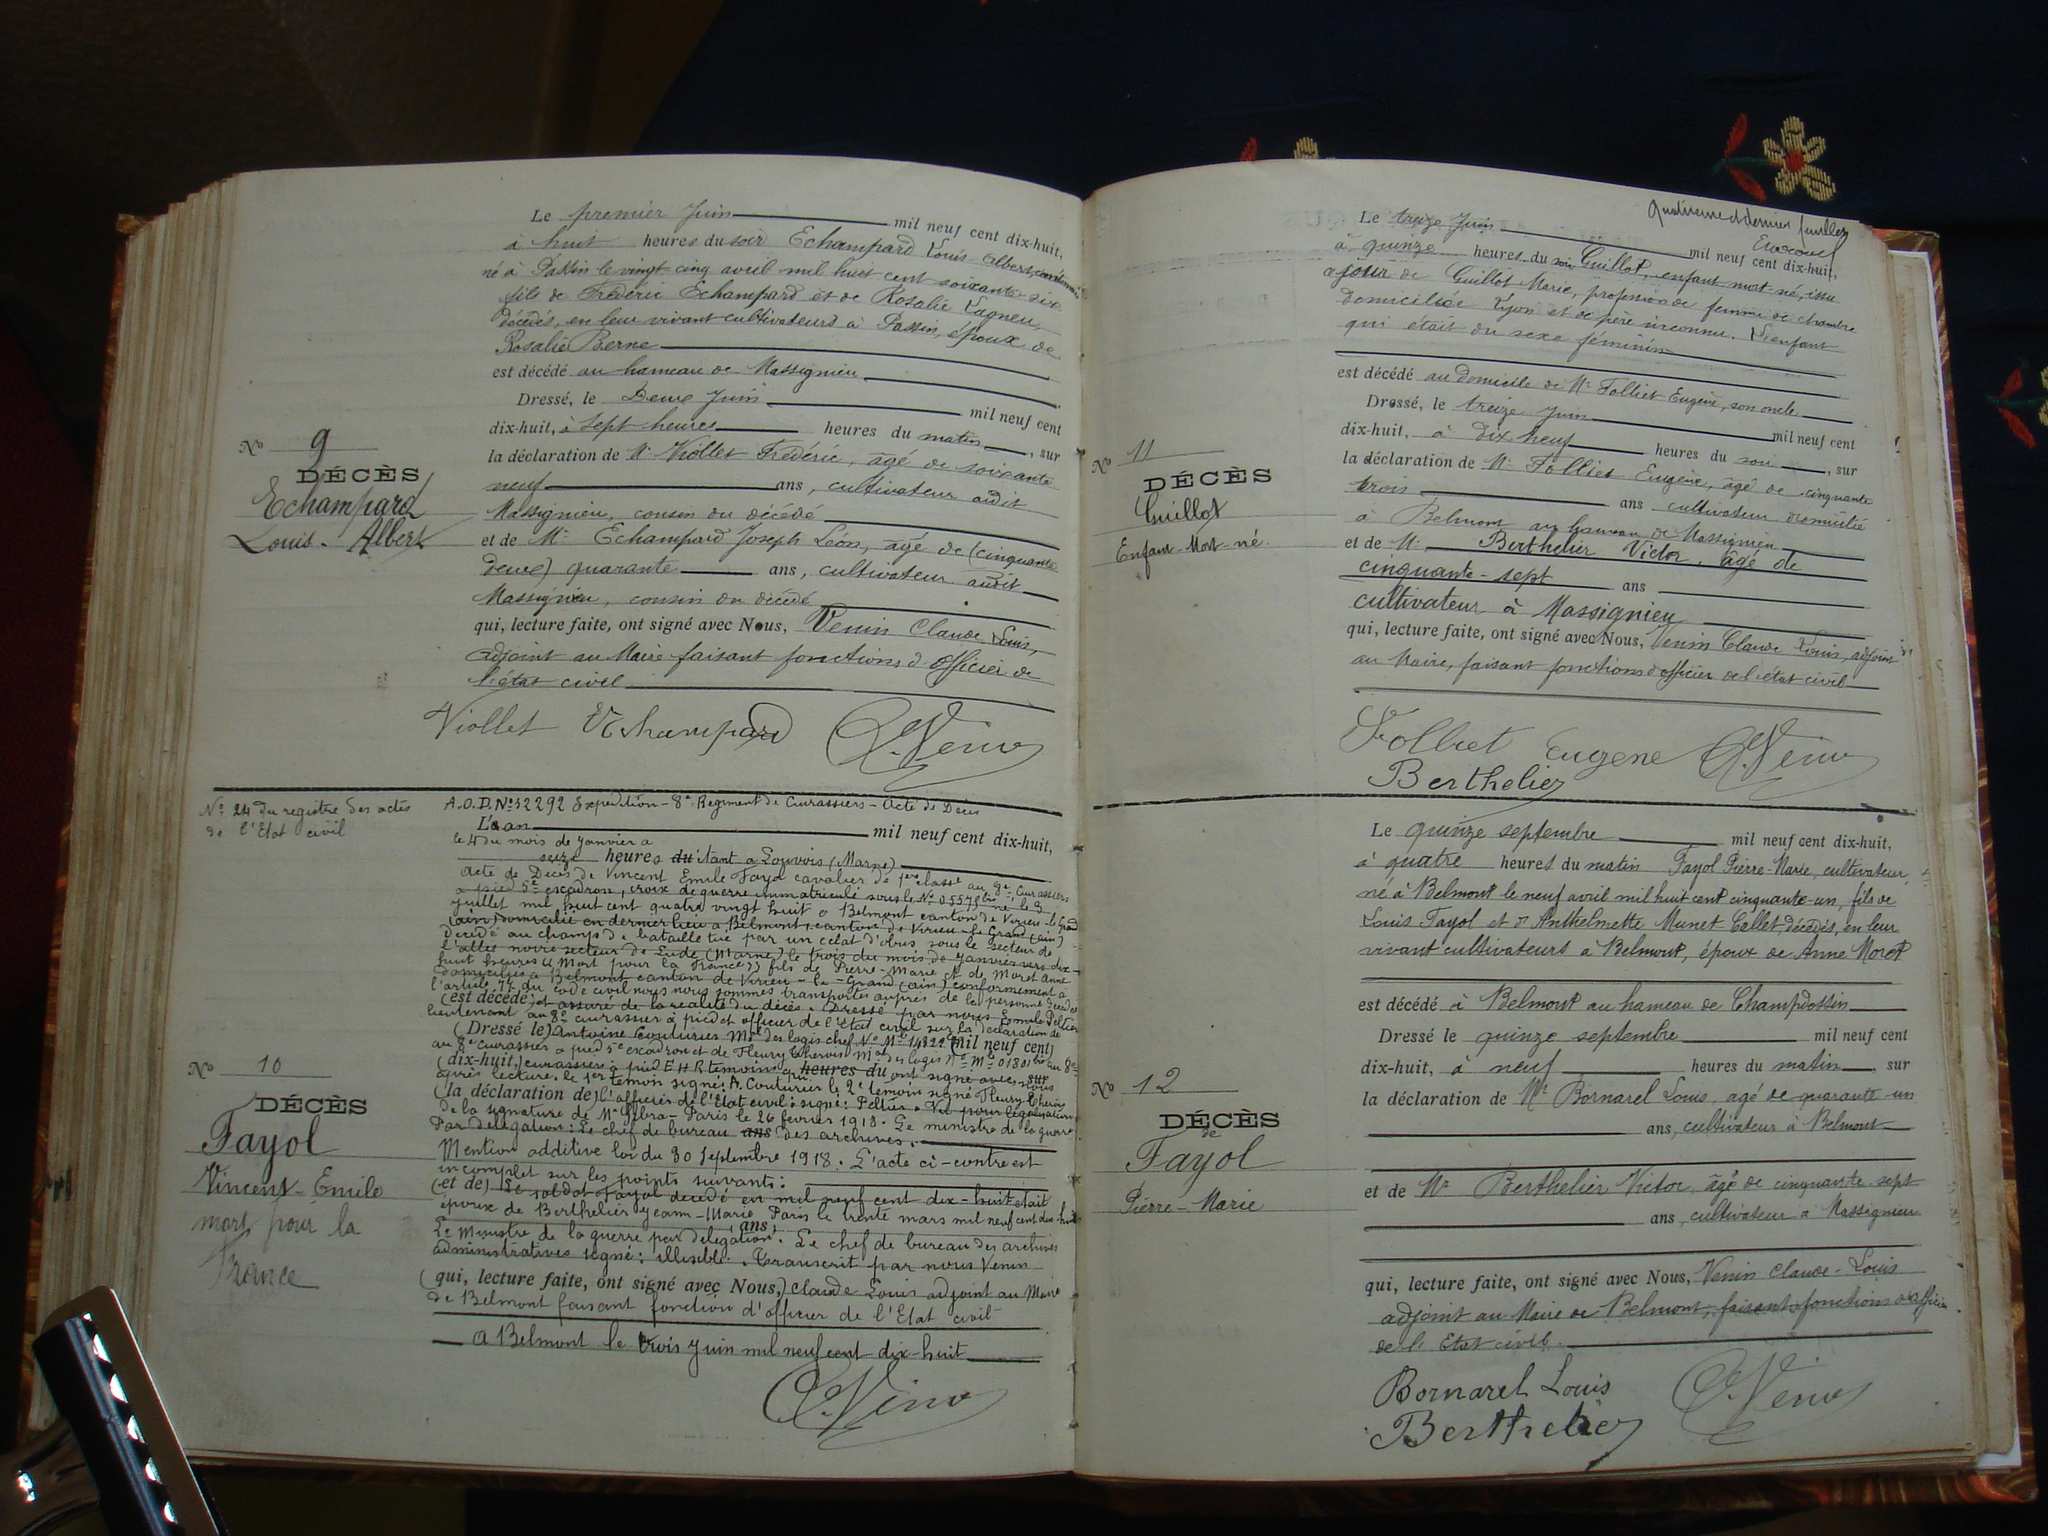 Le premier Juin mil neuf cent dix-huit,
à huit heures du soir Echampard Louis Albert,
né à Passin le vingt cinq avril mil huit cent soixante-six
fils de Frédéric Echampard et de Rosalie
décédés, en leur vivant cultivateurs à Passin, époux de
Rosalie Berne
est décédé au hameau de Massignieu
Dressé, le Deux Juin mil neuf cent
dix-huit, à sept heures heures du matin, sur
la déclaration de Mr Viollet Frédéric, âgé de soixante
neuf ans, cultivateur audit
Massignieu, cousin du décédé
et de Mr Echampard Joseph Léon, âgé de (cinquante
deux) quarante ans, cultivateur audit
Massignieu, cousin du décédé
qui, lecture faite, ont signé avec Nous, Venin Claude Louis,
adjoint au Maire faisant fonctions d'officier de
l'état civil
Viollet Echampard C. Venin
No 9
DÉCÈS
Echampard
Louis-Albert
No 24 du registre des actes
de l'Etat civil
A.O.D. No 52292 Expédition - 8e Régiment de Cuirassiers - Acte de Décès
L'an mil neuf cent dix-huit,
le 4 du mois de Janvier à
seize heures du étant à Louvois (Marne)
Acte de Décès de Vincent Emile Fayol cavalier de 1ère classe au 8e Cuirassiers
à pied 5e escadron, croix de guerre immatriculé sous le No 05575 né le 3
juillet mil huit cent quatre vingt huit à Belmont canton de Virieu-le-Grand
(ain) domicilié en dernier lieu à Belmont, canton de Virieu-le-Grand (ain)
décédé au champs de bataille tué par un éclat d'obus sous le secteur de
secteur de Lude (Marne) le trois du mois de janvier vers dix-
huit heures "Mort pour la France" fils de Pierre-Marie et de Moret Anne
domiciliés à Belmont canton de Virieu-le-Grand (ain) conformément à
l'article 77 du code civil nous nous sommes transportés auprès de la personne décédée
(est décédé) et assuré de la réalité du décès. Dressé par nous Emile Peltier
lieutenant au 8e cuirassier à pied et officier de l'état civil sur la déclaration de
(Dressé le) Antoine Couturier Mal des logis chef No Mle 14322 mil neuf cent)
au 8e cuirassier à pied 5e escadron et de Fleury Thevin Mal des logis No Mle 01801 au 8e
(dix-huit,) cuirassier à pied E H R témoins qui heures du ont signé avec sur nous
après lecture. le 1er témoin signé: A. Couturier le 2e témoin signé Fleury Thevin
(la déclaration de) l'officier de l'Etat civil: signé: Peltier. Vu pour légalisation
de la signature de Mr Paris le 26 février 1918. Le ministre de la guerre
Par délégation: Le chef de bureau ans des archives.
Mention additive loi du 30 Septembre 1918. L'acte ci-contre est
incomplet sur les points suivants:
(et de) Le soldat Fayol décédé en mil neuf cent dix-huit était
époux de Berthelier Jeann-Marie Paris le trente mars mil neuf cent dix-huit
Le Ministre de la guerre par délégation. ans, Le chef de bureau des archives
administratives signé: illisible. Transcrit par nous Venin
(qui, lecture faite, ont signé avec Nous,) Claude Louis adjoint au Maire
de Belmont faisant fonction d'officier de l'Etat civil
à Belmont le trois Juin mil neuf cent dix-huit
C. Venin
No 10
DÉCÈS
Fayol
Vincent-Emile
mort pour la
France
Quatrième et dernier feuillet
Le treize Juin mil neuf cent dix-huit,
à quinze heures du soir Guillot, enfant mort né, issu
à jour de Guillot Marie, profession de femme de chambre
domiciliée Lyon et de père inconnu. L'enfant
qui était du sexe féminin
est décédé au domicile de Mr Folliet Eugène, son oncle
Dressé, le treize Juin mil neuf cent
dix-huit, à dix neuf heures du soir, sur
la déclaration de Mr Folliet Eugène, âgé de cinquante
trois ans cultivateur domicilié
à Belmont au hameau de Massignieu
et de M. Berthelier Victor, âgé de
cinquante-sept ans
cultivateur à Massignieu
qui, lecture faite, ont signé avec Nous, Venin Claude Louis, adjoint
au Maire, faisant fonctions d'officier de l'état civil
Folliet Eugene C. Venin
Berthelier
No 11
DÉCÈS
Guillot
Enfant Mort-né
Le quinze septembre mil neuf cent dix-huit,
à quatre heures du matin Fayol Pierre-Marie, cultivateur,
né à Belmont le neuf avril mil huit cent cinquante-un, fils de
Louis Fayol et d'Anthelmette Munet Callet décédés, en leur
vivant cultivateurs à Belmont, époux de Anne Moret
est décédé à Belmont au hameau de Champdossin
Dressé le quinze septembre mil neuf cent
dix-huit, à neuf heures du matin, sur
la déclaration de Mr Bornarel Louis, âgé de quarante-un
ans, cultivateur à Belmont
et de Mr Berthelier Victor, âgé de cinquante-sept
ans, cultivateur à Massignieu
qui, lecture faite, ont signé avec Nous, Venin Claude-Louis
adjoint au Maire de Belmont, faisant fonctions d'officier
de l'Etat civil.
Bornarel Louis C. Venin
Berthelier
No 12
DÉCÈS
de
Fayol
Pierre-Marie